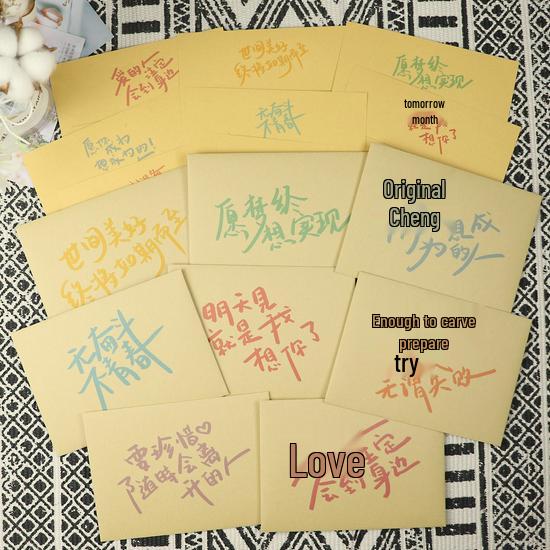 爱的人注定
会到身边
世间美好
终将如期而至
愿梦终
想实现
愿你成为
想成为的人!
无奋斗
不青春
tomorrow
month
就是我
想你了
世间美好
终将如期而至
愿梦终
想实现
Original
Cheng
为的人
无奋斗
不青春
明天见
就是我
想你了
Enough to carve
prepare
try
无谓失败
要珍惜
随时会离
开的人
Love
注定
会到身边